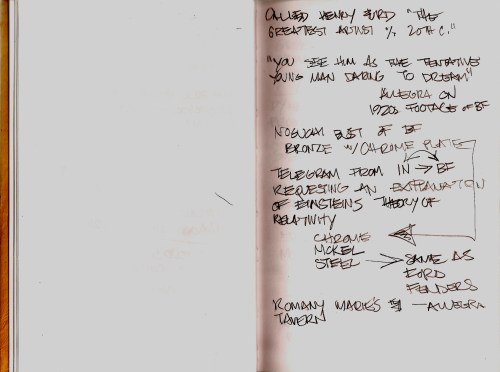 CALLED HENRY FORD "THE
GREATEST ARTIST OF 20TH C."
"YOU SEE HIM AS THE TENTATIVE
YOUNG MAN DARING TO DREAM"
ALLEGRA ON
1920s FOOTAGE OF BF
NOGUCHI BUST OF BF
BRONZE W/ CHROME PLATE
TELEGRAM FROM IN → BF
REQUESTING AN EXPLANATION
OF EINSTEINS THEORY OF
RELATIVITY
CHROME
NICKEL
STEEL → SAME AS
FORD
FENDERS
ROMANY MARIE'S — ALLEGRA
TAVERN